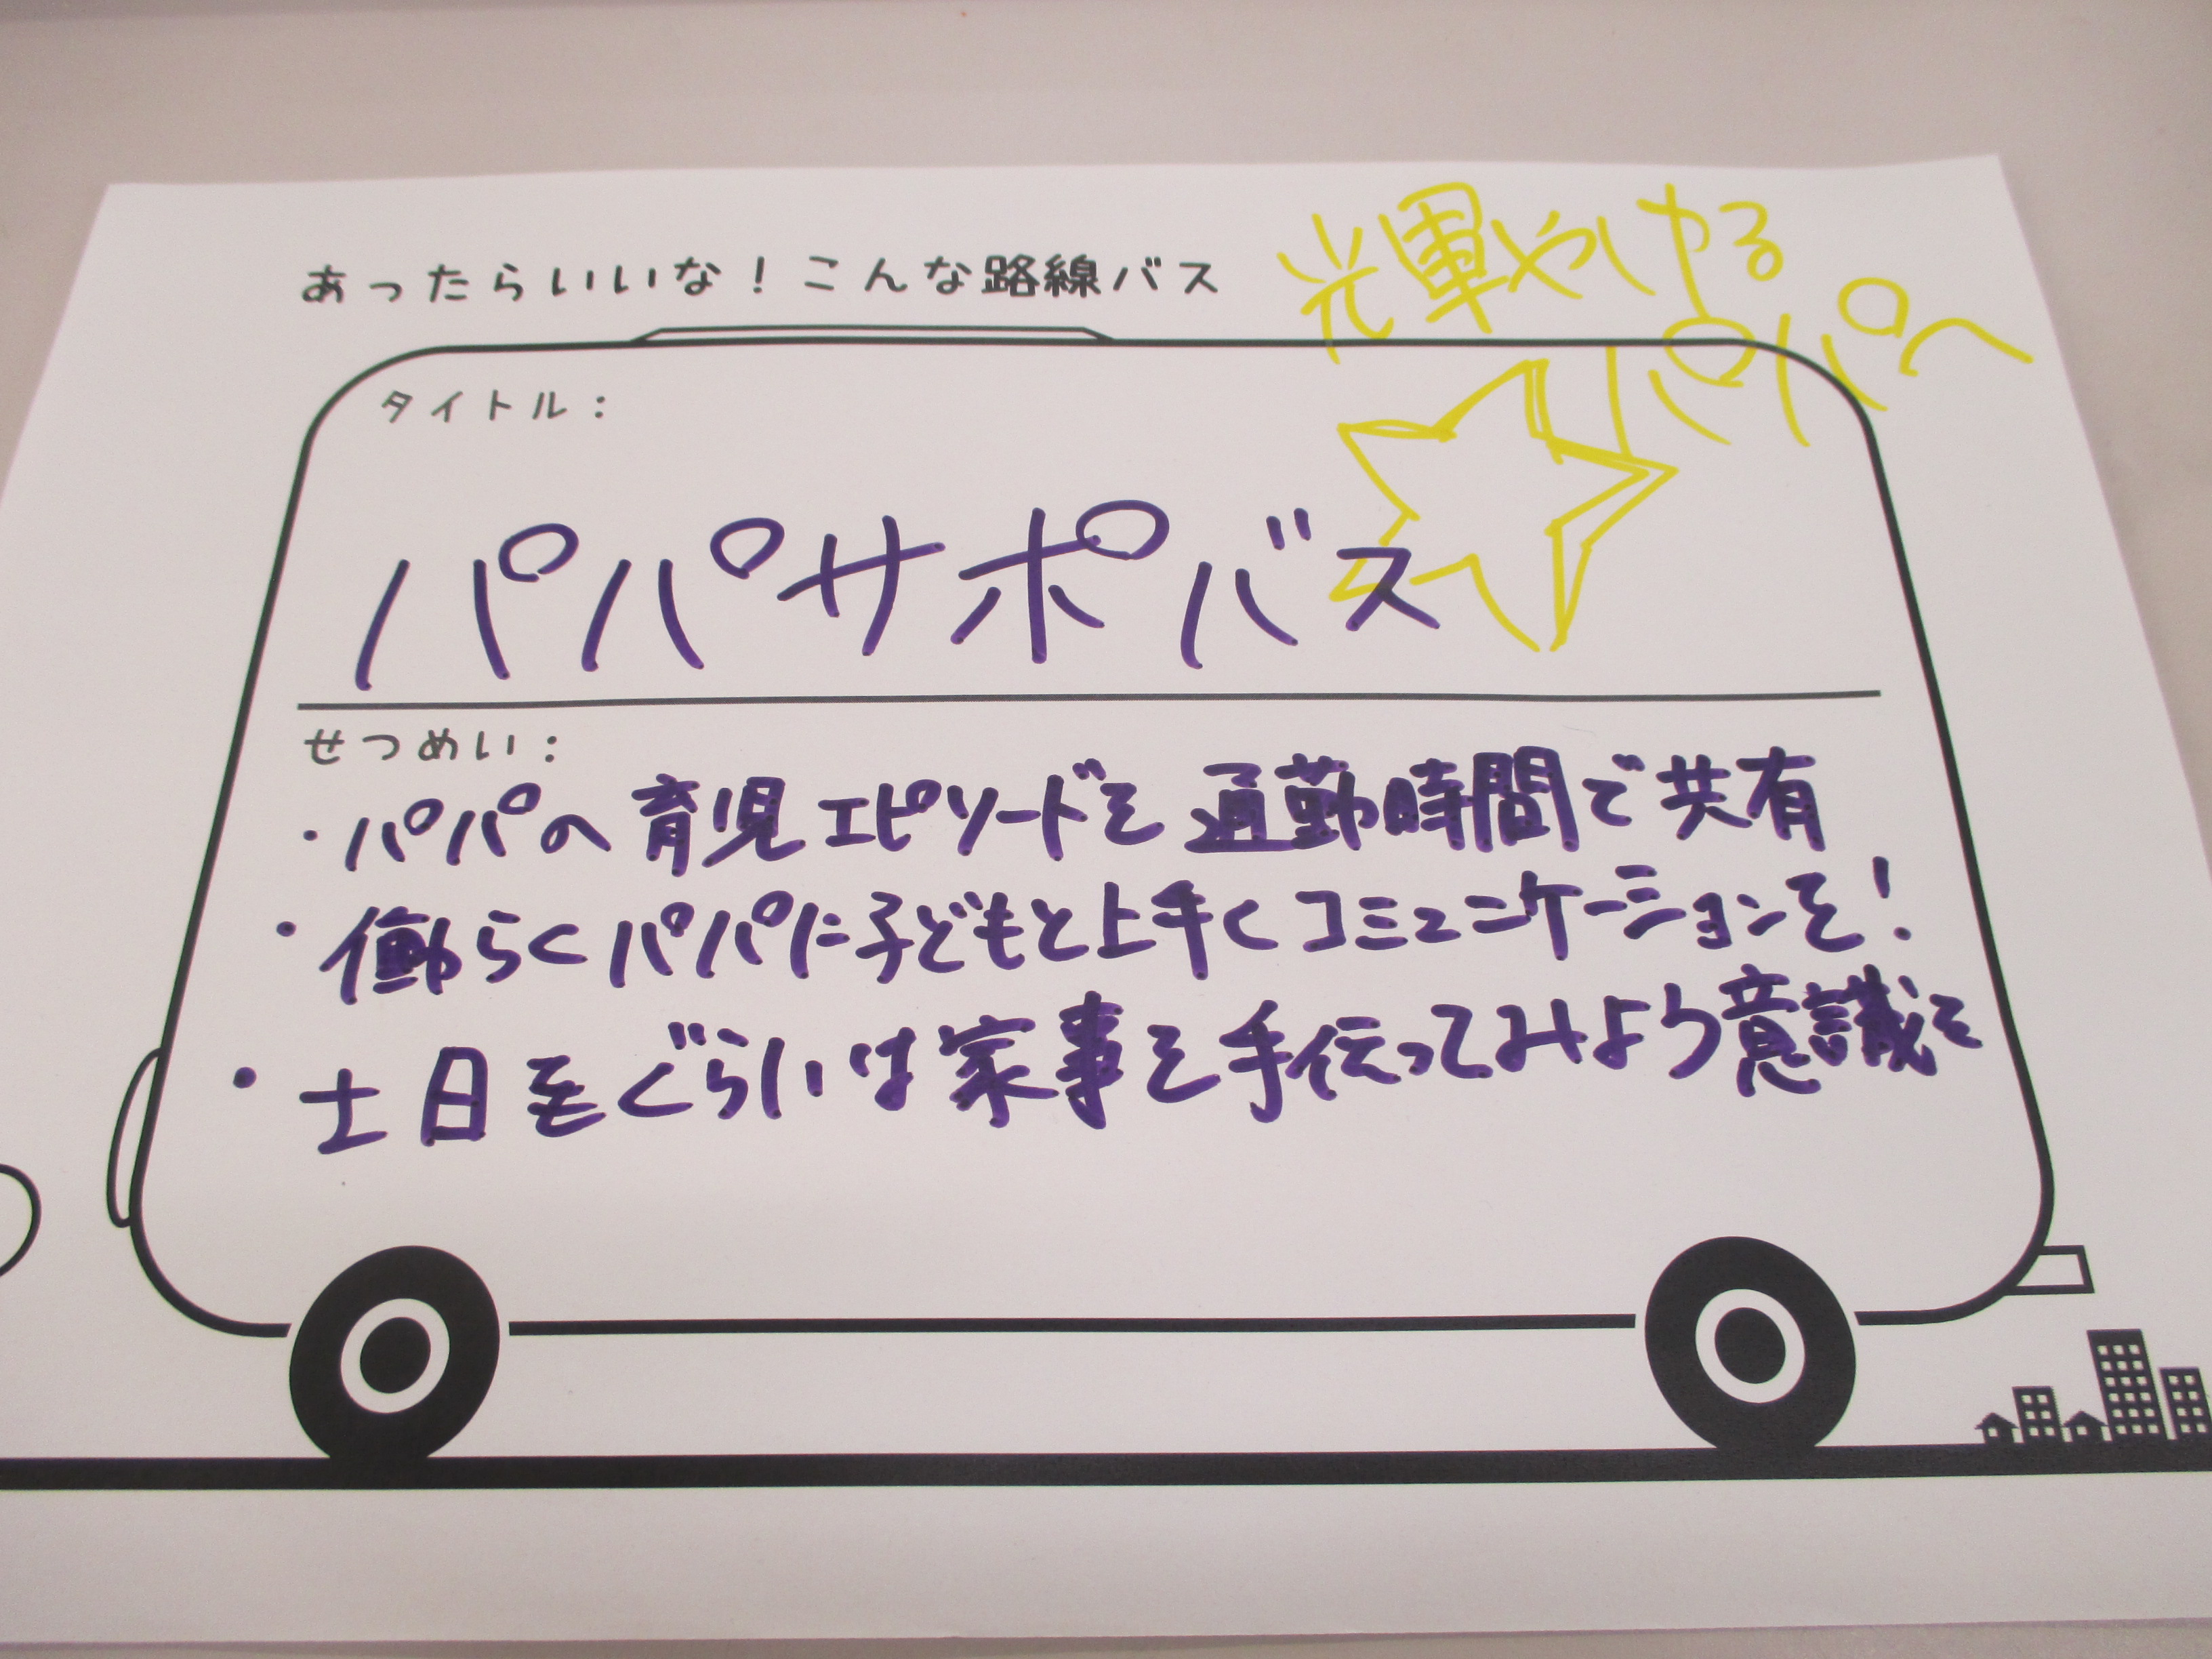 あったらいいな！こんな路線バス
輝やける
パパへ
タイトル：
パパサポバス
せつめい：
・パパの育児エピソードを通勤時間で共有
・働らくパパに子どもと上手くコミュニケーションを！
・土日をぐらいは家事を手伝ってみよう意識を